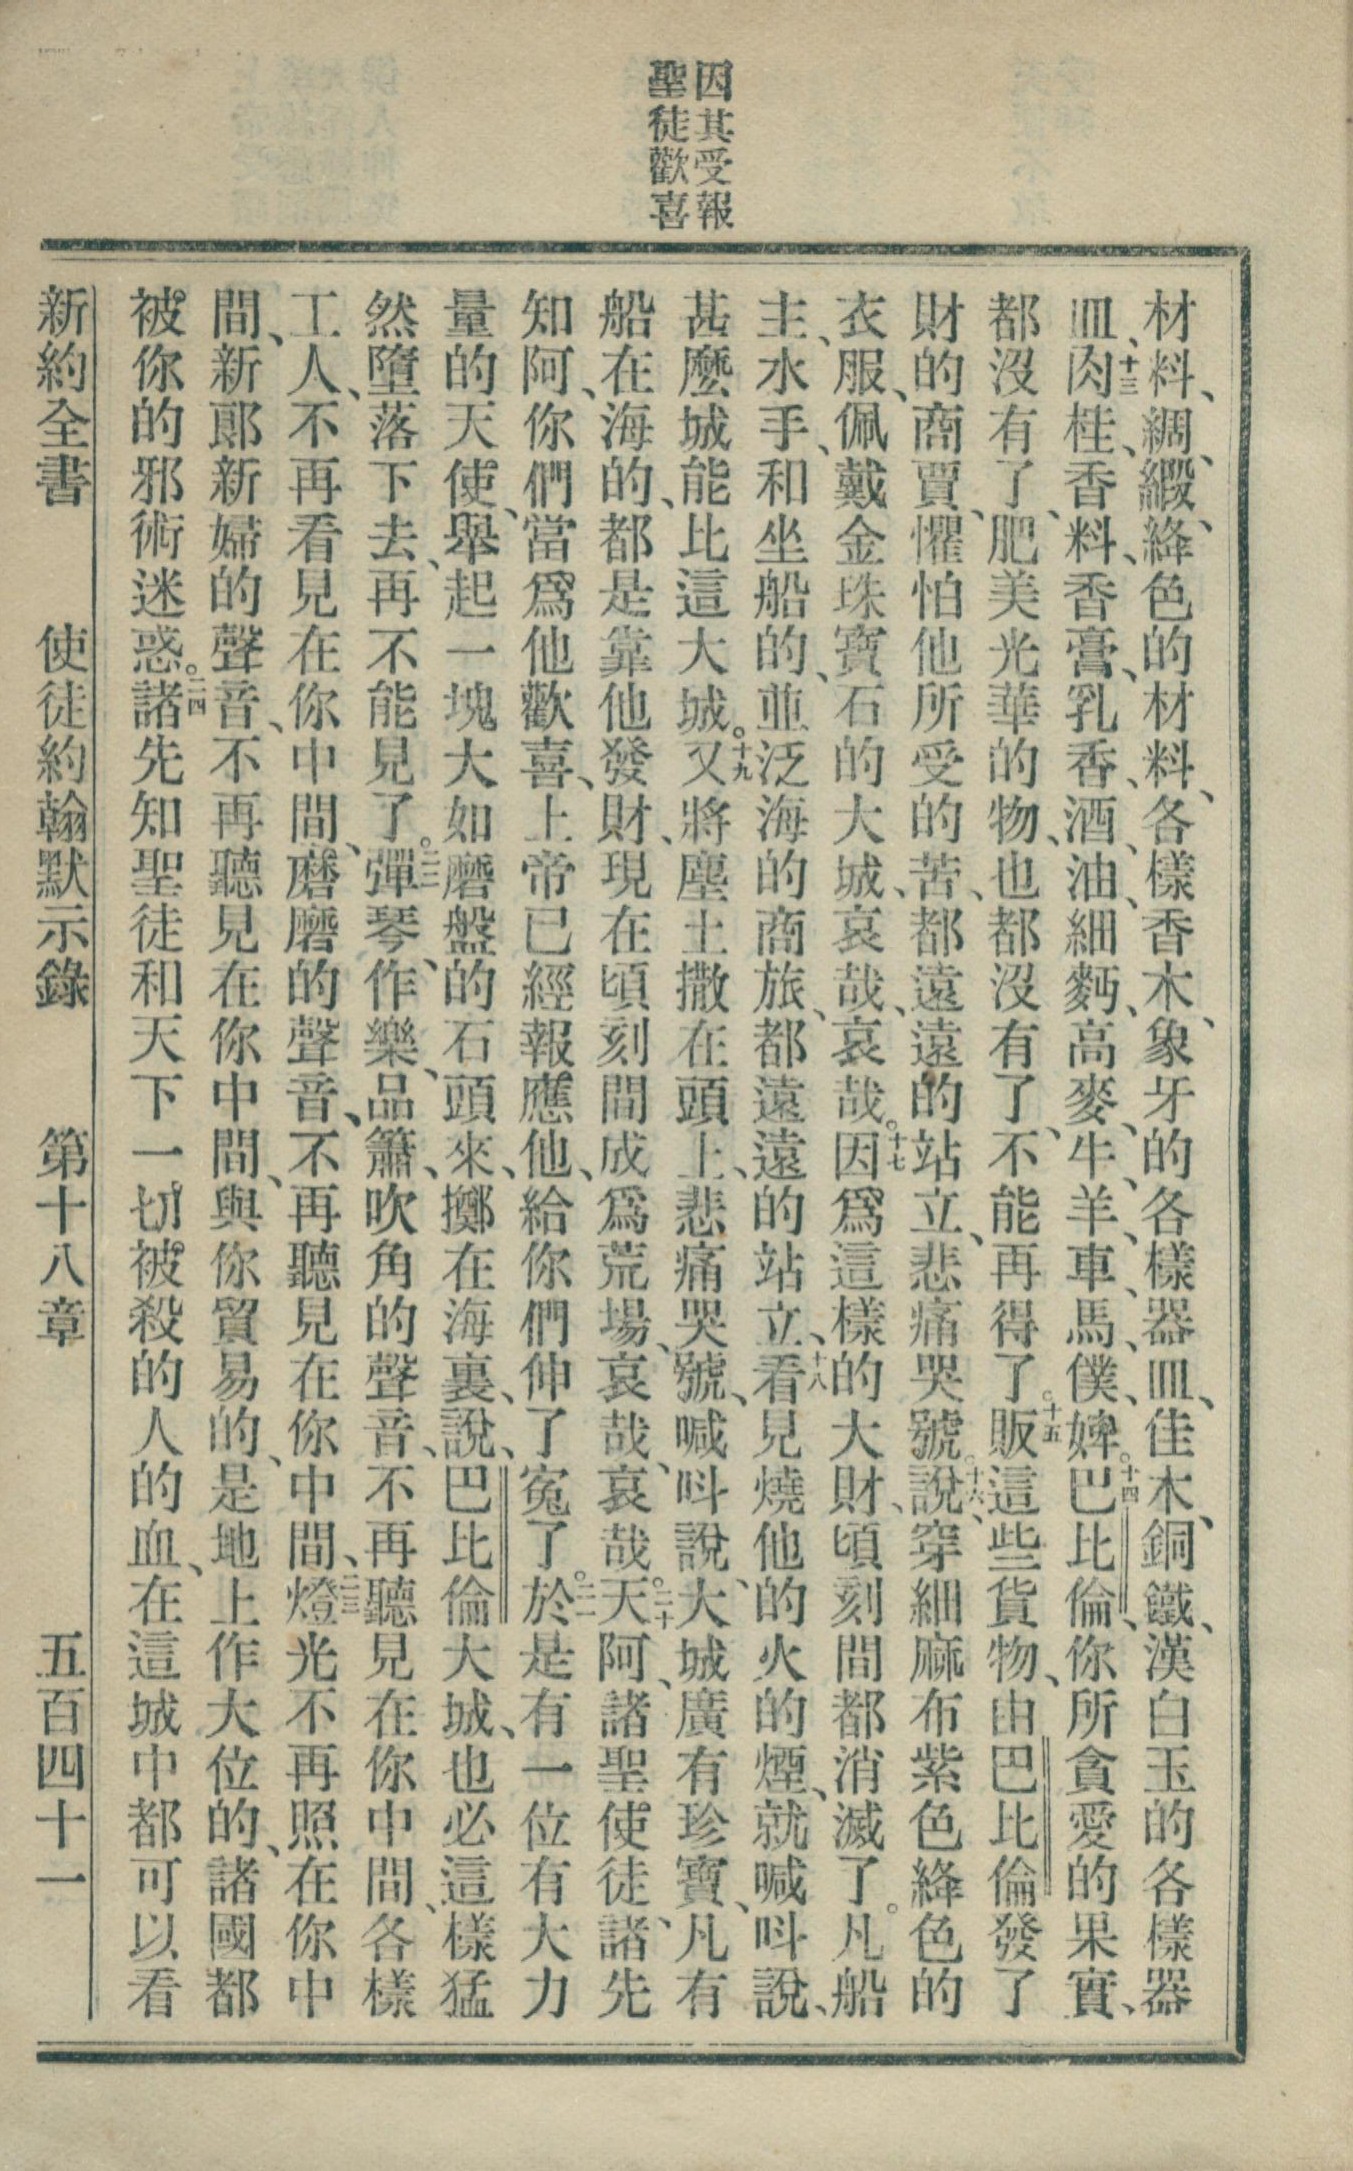 因其受報
聖徒歡喜
材料、綢緞、絳色的材料、各樣香木、象牙的各樣器皿、佳木、銅鐵、漢白玉的各樣器
皿、十三肉桂、香料、香膏、乳香、酒、油、細麪、高麥、牛、羊、車、馬、僕、婢。十四巴比倫、你所貪愛的果實、
都沒有了、肥美光華的物、也都沒有了、不能再得了。十五販這些貨物、由巴比倫發了
財的商賈、懼怕他所受的苦、都遠遠的站立、悲痛哭號。十六說、穿細麻布紫色絳色的
衣服、佩戴金珠寶石的大城、哀哉、哀哉。十七因爲這樣的大財、頃刻間都消滅了。凡船
主、水手、和坐船的、並泛海的商旅、都遠遠的站立、十八看見燒他的火的煙、就喊叫說、
甚麼城能比這大城。十九又將塵土撒在頭上、悲痛哭號、喊叫說、大城廣有珍寶、凡有
船在海的、都是靠他發財、現在頃刻間成爲荒場、哀哉、哀哉。二十天阿、諸聖使徒、諸先
知阿、你們當爲他歡喜、上帝已經報應他、給你們伸了寃了。二一於是有一位有大力
量的天使、舉起一塊大如磨盤的石頭來、擲在海裏、說、巴比倫大城、也必這樣猛
然墮落下去、再不能見了。二二彈琴、作樂、品簫、吹角的聲音、不再聽見在你中間、各樣
工人、不再看見在你中間、磨磨的聲音、不再聽見在你中間、二三燈光不再照在你中
間、新郞新婦的聲音、不再聽見在你中間、與你貿易的、是地上作大位的、諸國都
被你的邪術迷惑。二四諸先知聖徒和天下一切被殺的人的血、在這城中都可以看
新約全書　使徒約翰默示錄　第十八章　五百四十一